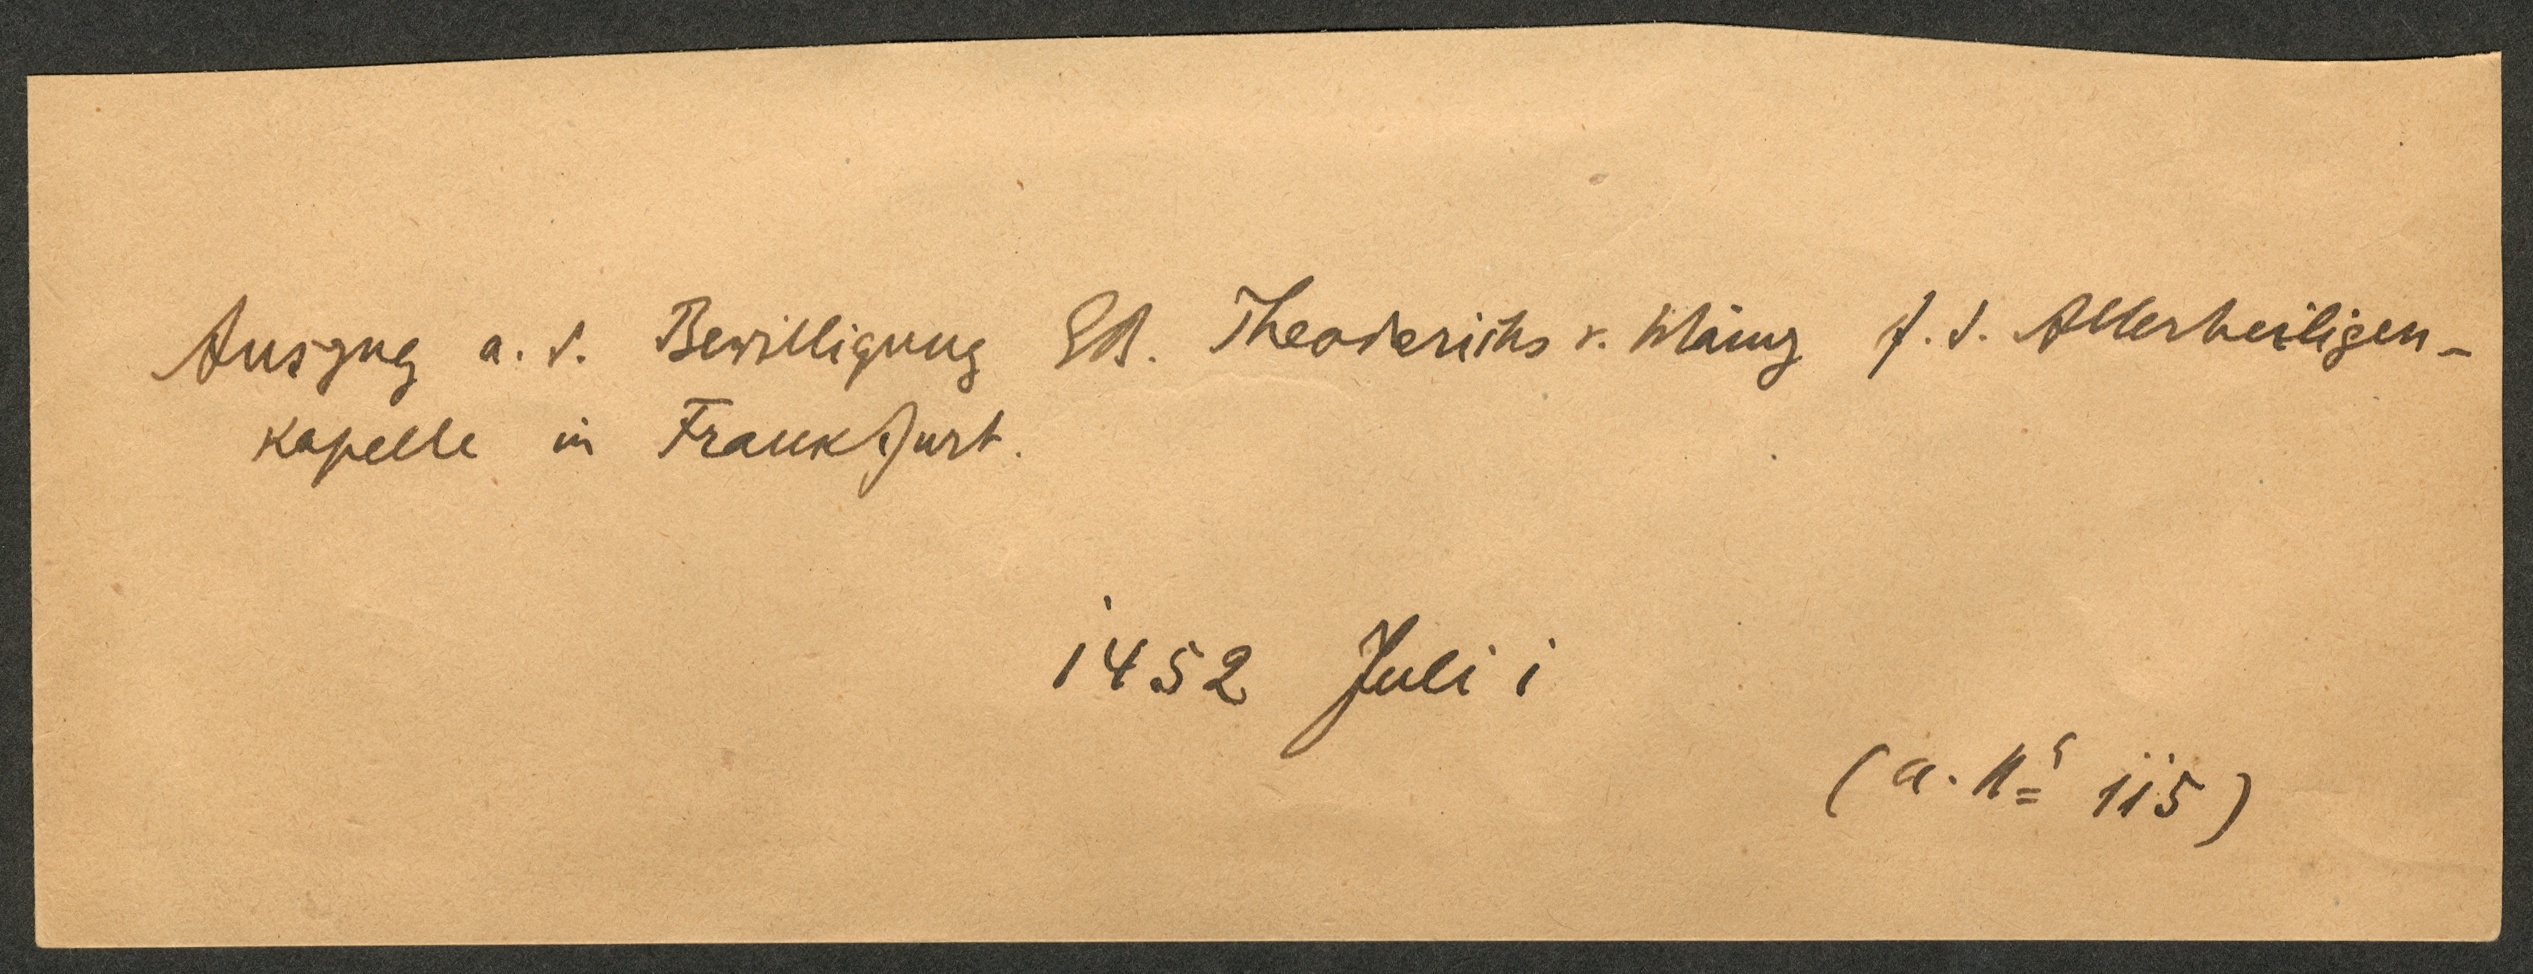 Auszug a. d. Bewilligung EB. Theoderichs v. Mainz f. d. Allerheiligen-
kapelle in Frankfurt.
1452 Juli 1
(a. No 115)